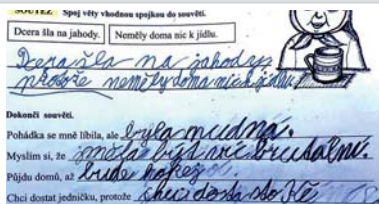 SOUTĚŽ Spoj věty vhodnou spojkou do souvětí.
Dcera šla na jahody. Neměly doma nic k jídlu.
Dcera šla na jahody,
protože neměly doma nic k jídlu.
Dokonči souvětí.
Pohádka se mně líbila, ale byla nudná.
Myslím si, že měla být víc brutalní.
Půjdu domů, až bude hokej.
Chci dostat jedničku, protože chci dostat sto Kč